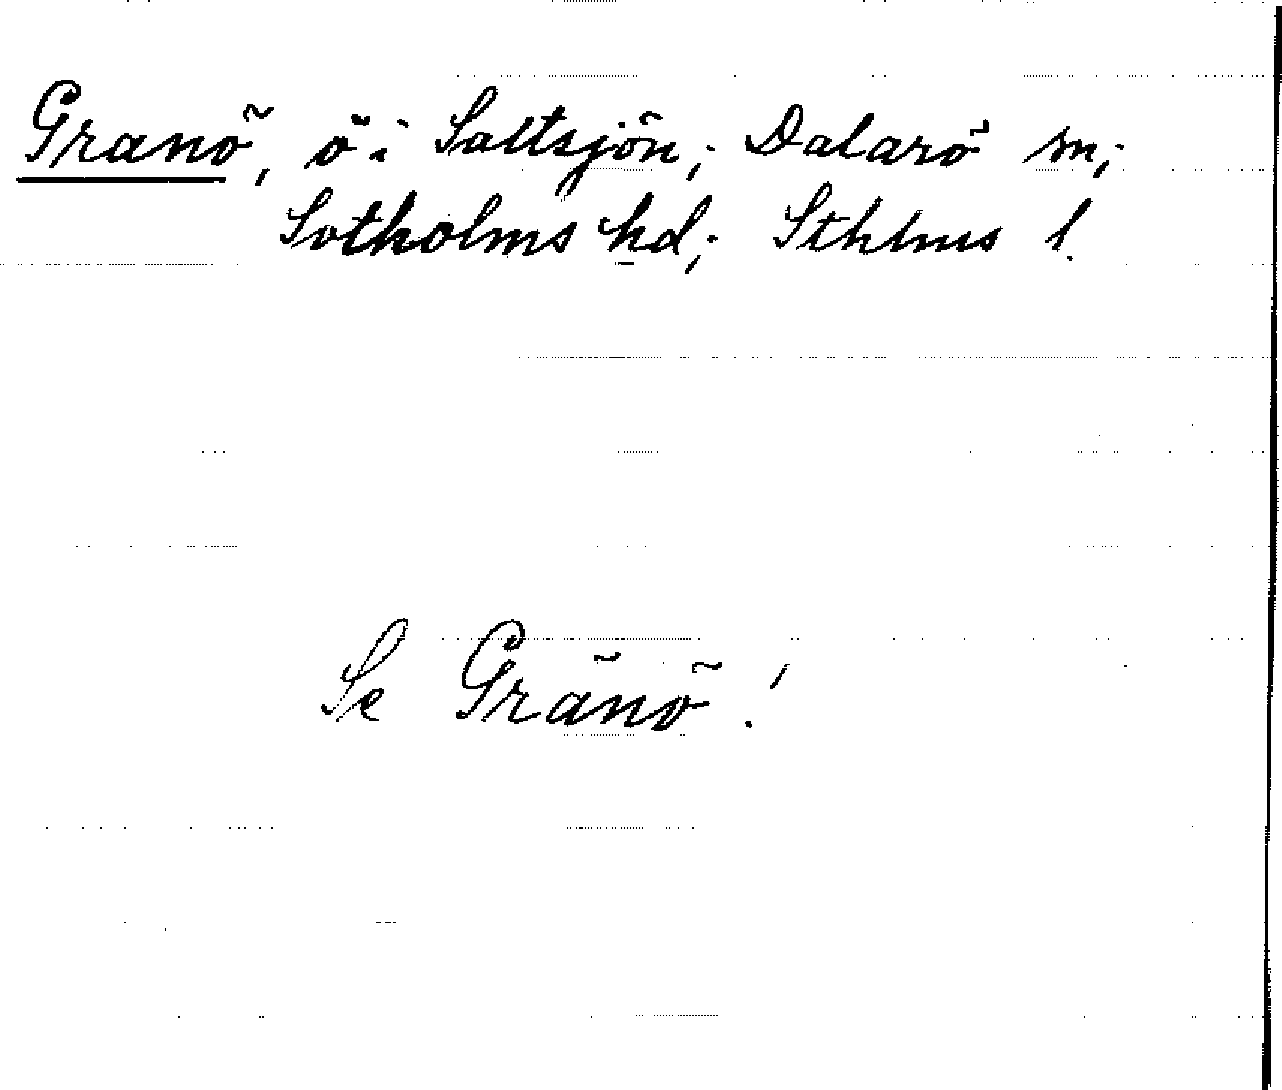 Granö, ö i Saltsjön; Dalarö sn;
Sotholms hd; Sthlms l.
Se Gränö!